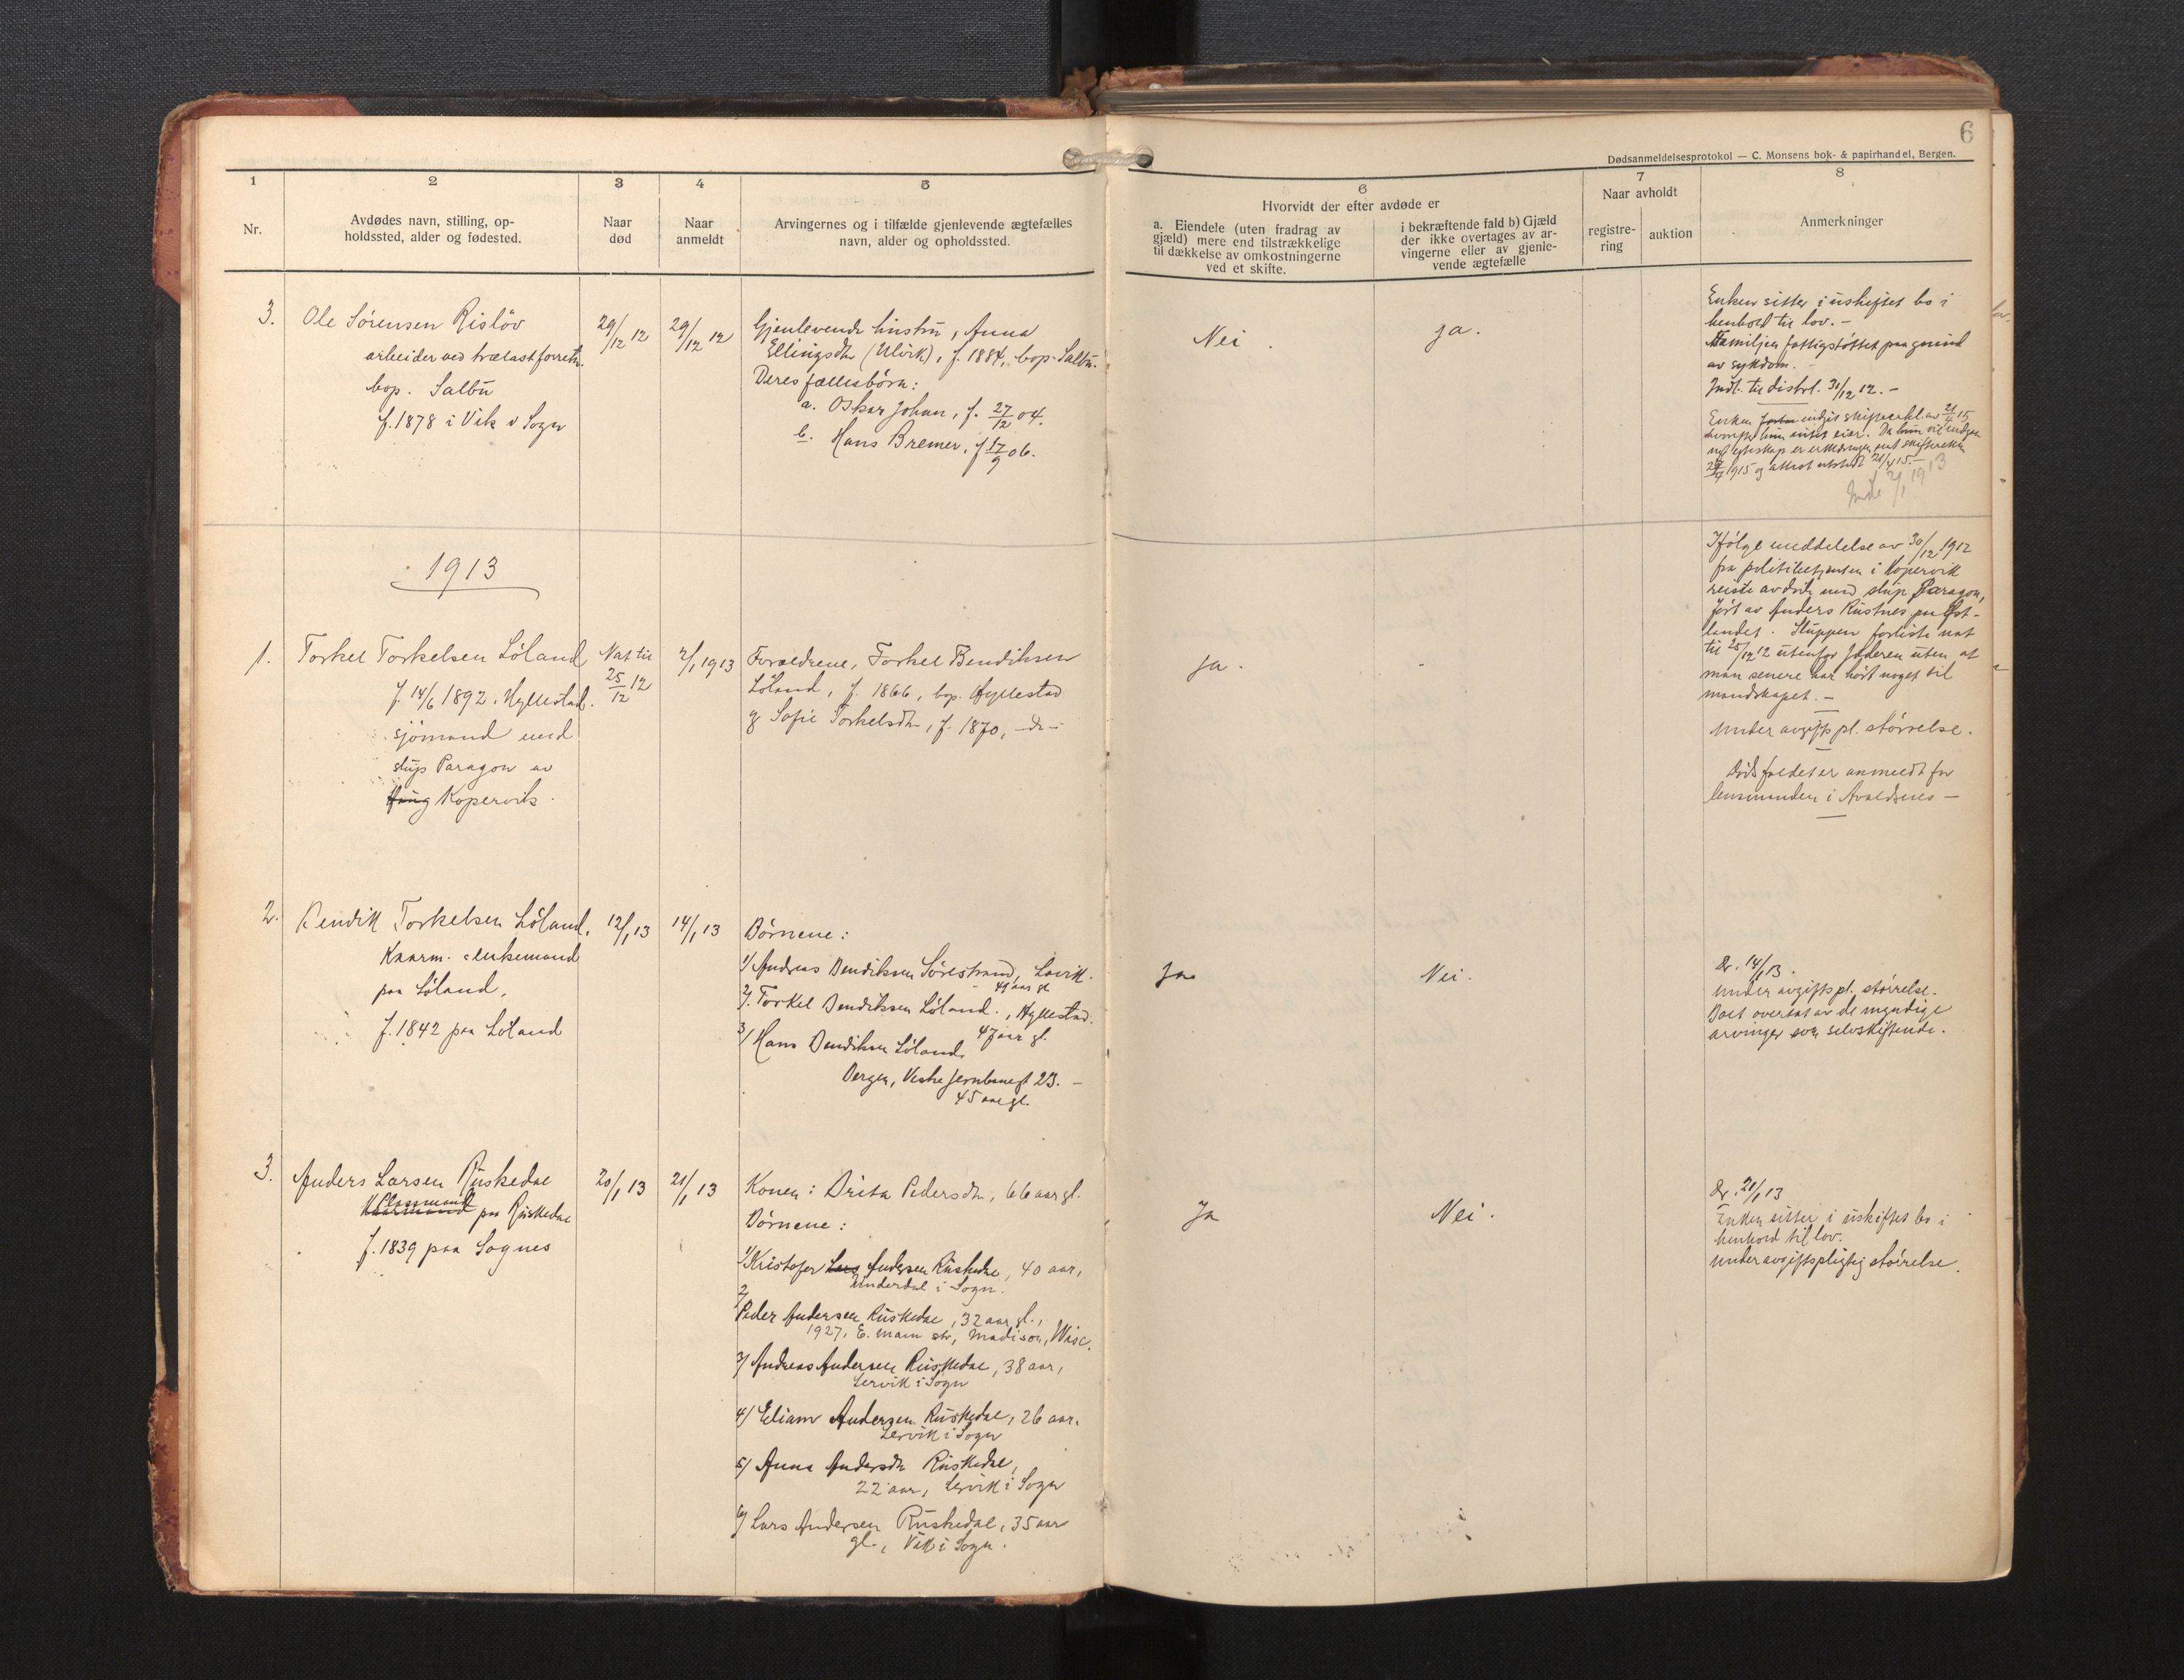 6
Dødsanmeldelsesprotokol — C. Monsens bok- & papirhandel, Bergen.
1
2
3
4
5
6
7
8
Nr.
Avdødes navn, stilling, op-
holdssted, alder og fødested.
Naar
død
Naar
anmeldt
Arvingernes og i tilfælde gjenlevende ægtefælles
navn, alder og opholdssted.
Hvorvidt der efter avdøde er
a. Eiendele (uten fradrag av
gjæld) mere end tilstrækkelige
til dækkelse av omkostningerne
ved et skifte.
i bekræftende fald b) Gjæld
der ikke overtages av ar-
vingerne eller av gjenle-
vende ægtefælle
Naar avholdt
registre-
ring
auktion
Anmerkninger
3.
Ole Sörensen Rislöv
arbeider ved trælastforretn.
bop. Salbu
f. 1878 i Vik i Sogn
29/12 12
29/12 12
Gjenlevende hustru, Anna
Ellingsdtr (Ulvik), f. 1884, bop. Salbu.
Deres fællesbörn:
a. Oskar Johan, f. 27/12 04.
b. Hans Bremer, f 17/9 06.
Nei.
Ja.
Enken sitter i uskiftet bo i
henhold til lov. —
Familjen fattigstöttet paa grund
av sykdom. —
Indb. til distrl. 31/12 12. —
Enken indgit skifteerkl. av 21/4 15,
hvorefter hun intet eier. Da hun vil indgaa
nyt egteskap er erklæringen
1915 og attest utstedt 21/4 15. —
2/1 1913
1913
1.
Torkel Torkelsen Löland
f. 14/6 1892, Hyllestad.
sjömand med
slup Paragon av
Haug Kopervik.
Nat til
25/12 12
2/1 1913
Forældrene, Torkel Bendiksen
Löland, f. 1866, bop. Hyllestad
og Sofie Torkelsdtr, f. 1870, —do—
Ja.
-
Ifölge meddelelse av 30/12 1912
fra politibetjenten i Kopervik
reiste avdöde med slup Paragon,
fört av Anders Rustnes paa Öst-
landet. Sluppen forliste nat
til 25/12 12 utenfor Jæderen uten at
man senere har hört noget til
mandskapet. —
Under avgiftspl. störrelse.
Dödsfaldet er anmeldt for
lensmanden i Avaldsnes —
2.
Bendik Torkelsen Löland,
Kaarm. enkemand
paa Löland,
f. 1842 paa Löland
12/1 13
14/1 13
Börnene:
1/ Andreas Bendiksen Sörestrand, Lavik.
49 aar gl
2/. Torkel Bendiksen Löland., Hyllestad.
47 aar gl.
3/ Hans Bendiksen Löland,
Bergen, Vestre Jernbanegt 23. —
45 aar gl.
Ja
Nei.
Er. 14/1 13.
Under avgiftspl. störrelse.
Boet overtat av de myndige
arvinger som selvskiftende.
3.
Anders Larsen Ruskedal
Kaarmand Plassmand paa Ruskedal
f. 1839 paa Sognes
20/1 13
21/1 13
Konen: Brita Pedersdtr, 66 aar gl.
Börnene:
1/ Kristofer Lars Andersen Ruskedal, 40 aar,
Underdal i Sogn.
2/
Peder Andersen Ruskedal, 32 aar gl.,
1927, E. main str, Madison, Wisc.
3/ Andreas Andersen Ruskedal, 38 aar,
Lervik i Sogn
4/ Eliam Andersen Ruskedal, 26 aar.
Lervik i Sogn
5/ Anna Andersdtr Ruskedal,
22 aar, Lervik i Sogn
6/ Lars Andersen Ruskedal, 35 aar
gl., Vik i Sogn.
Ja
Nei.
Er. 21/1 13
Enken sitter i uskiftet bo i
henhold til lov.
Under avgiftspligtig störrelse.